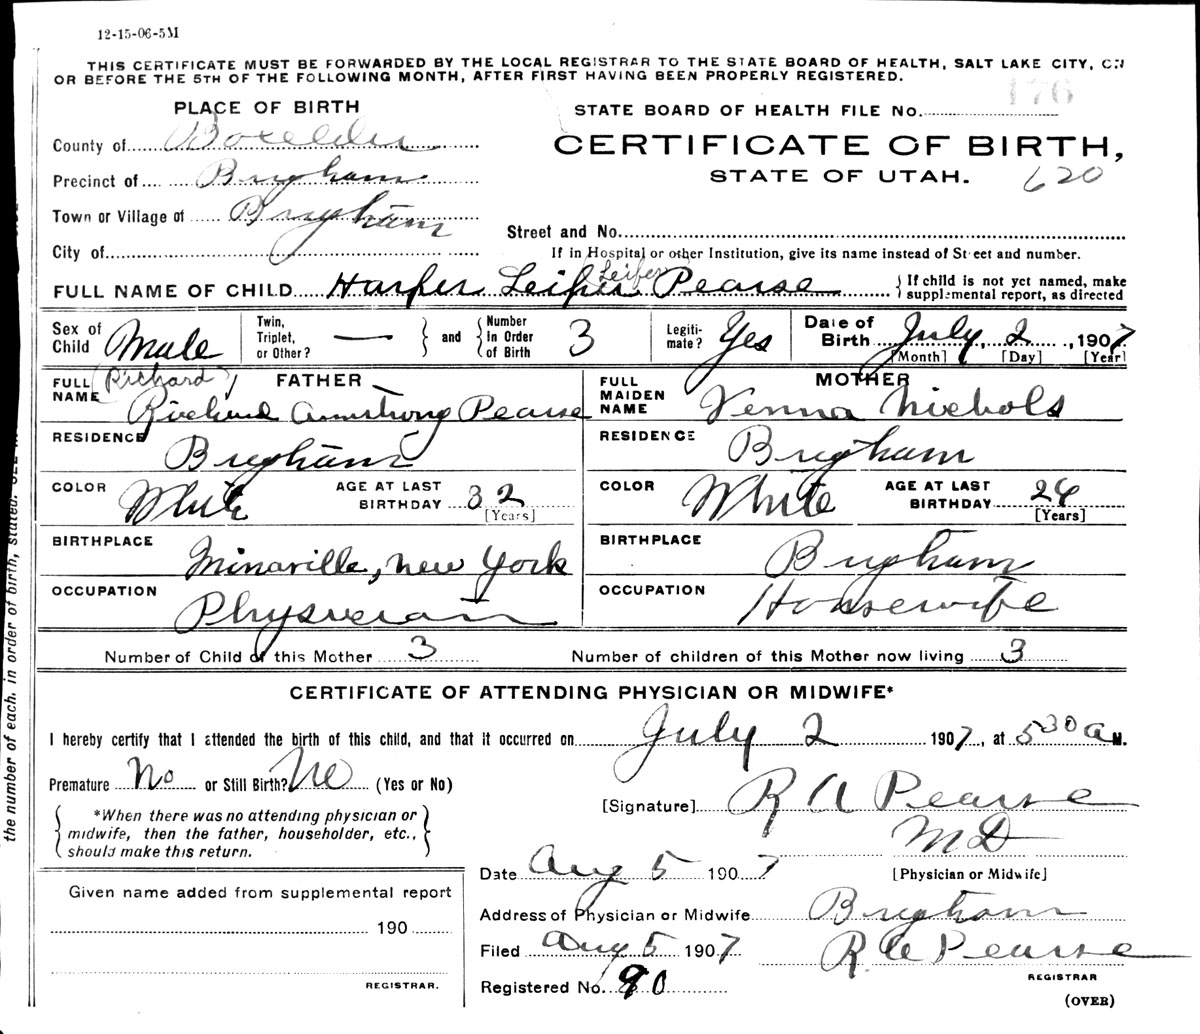 12-15-06-5M
THIS CERTIFICATE MUST BE FORWARDED BY THE LOCAL REGISTRAR TO THE STATE BOARD OF HEALTH, SALT LAKE CITY, ON
OR BEFORE THE 5TH OF THE FOLLOWING MONTH, AFTER FIRST HAVING BEEN PROPERLY REGISTERED.
PLACE OF BIRTH
County of Boxelder
Precinct of Brigham
Town or Village of Brigham
City of
STATE BOARD OF HEALTH FILE No. 176
CERTIFICATE OF BIRTH,
STATE OF UTAH. 620
Street and No.
If in Hospital or other Institution, give its name instead of Street and number.
Leifer
FULL NAME OF CHILD Harper Leifer Pearse { If child is not yet named, make
supplemental report, as directed
Sex of Child Male
Twin, Triplet, or Other? — } and { Number in Order of Birth 3
Legitimate? Yes
Date of Birth July 2, 1907
[Month] [Day] [Year]
FATHER
(Richard)
FULL NAME Richard Armstrong Pearse
RESIDENCE Brigham
COLOR White AGE AT LAST BIRTHDAY 32 [Years]
BIRTHPLACE Minaville, New York
OCCUPATION Physician
MOTHER
FULL MAIDEN NAME Venna Nichols
RESIDENCE Brigham
COLOR White AGE AT LAST BIRTHDAY 26 [Years]
BIRTHPLACE Brigham
OCCUPATION Housewife
Number of Child of this Mother 3 Number of children of this Mother now living 3
CERTIFICATE OF ATTENDING PHYSICIAN OR MIDWIFE*
I hereby certify that I attended the birth of this child, and that it occurred on July 2 1907, at 5 30 a M.
Premature No or Still Birth? No (Yes or No)
*When there was no attending physician or
midwife, then the father, householder, etc.,
should make this return.
[Signature] R A Pearse
M D
[Physician or Midwife]
Date Aug 5 1907
Address of Physician or Midwife Brigham
Filed Aug 5 1907 R. A Pearse
REGISTRAR
Registered No. 90
(OVER)
Given name added from supplemental report
190
REGISTRAR.
the number of each, in order of birth, stated.